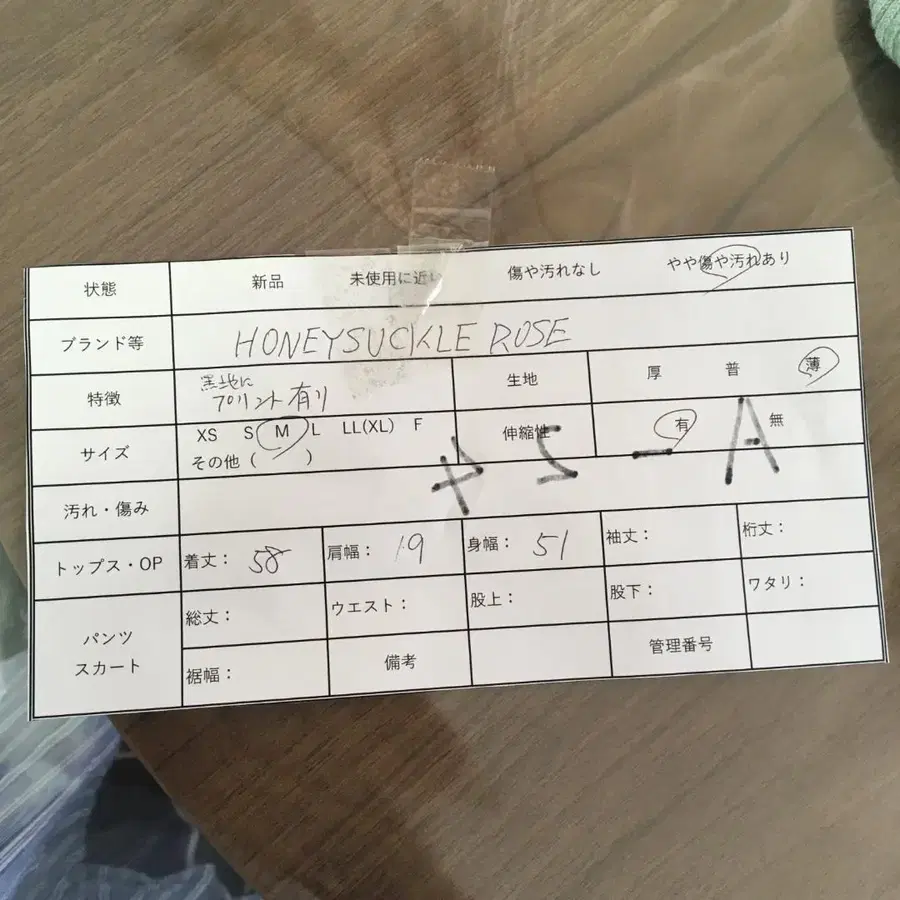 状態 新品 未使用に近い 傷や汚れなし やや傷や汚れあり
ブランド等 HONEYSUCKLE ROSE
特徴 黒地に
プリント有り
生地 厚 普 薄
サイズ XS S M L LL(XL) F
その他 ( )
伸縮性 有 無
汚れ・傷み
トップス・OP 着丈: 58 肩幅: 19 身幅: 51 袖丈: 裄丈:
パンツ
スカート
総丈: ウエスト: 股上: 股下: ワタリ:
裾幅: 備考 管理番号